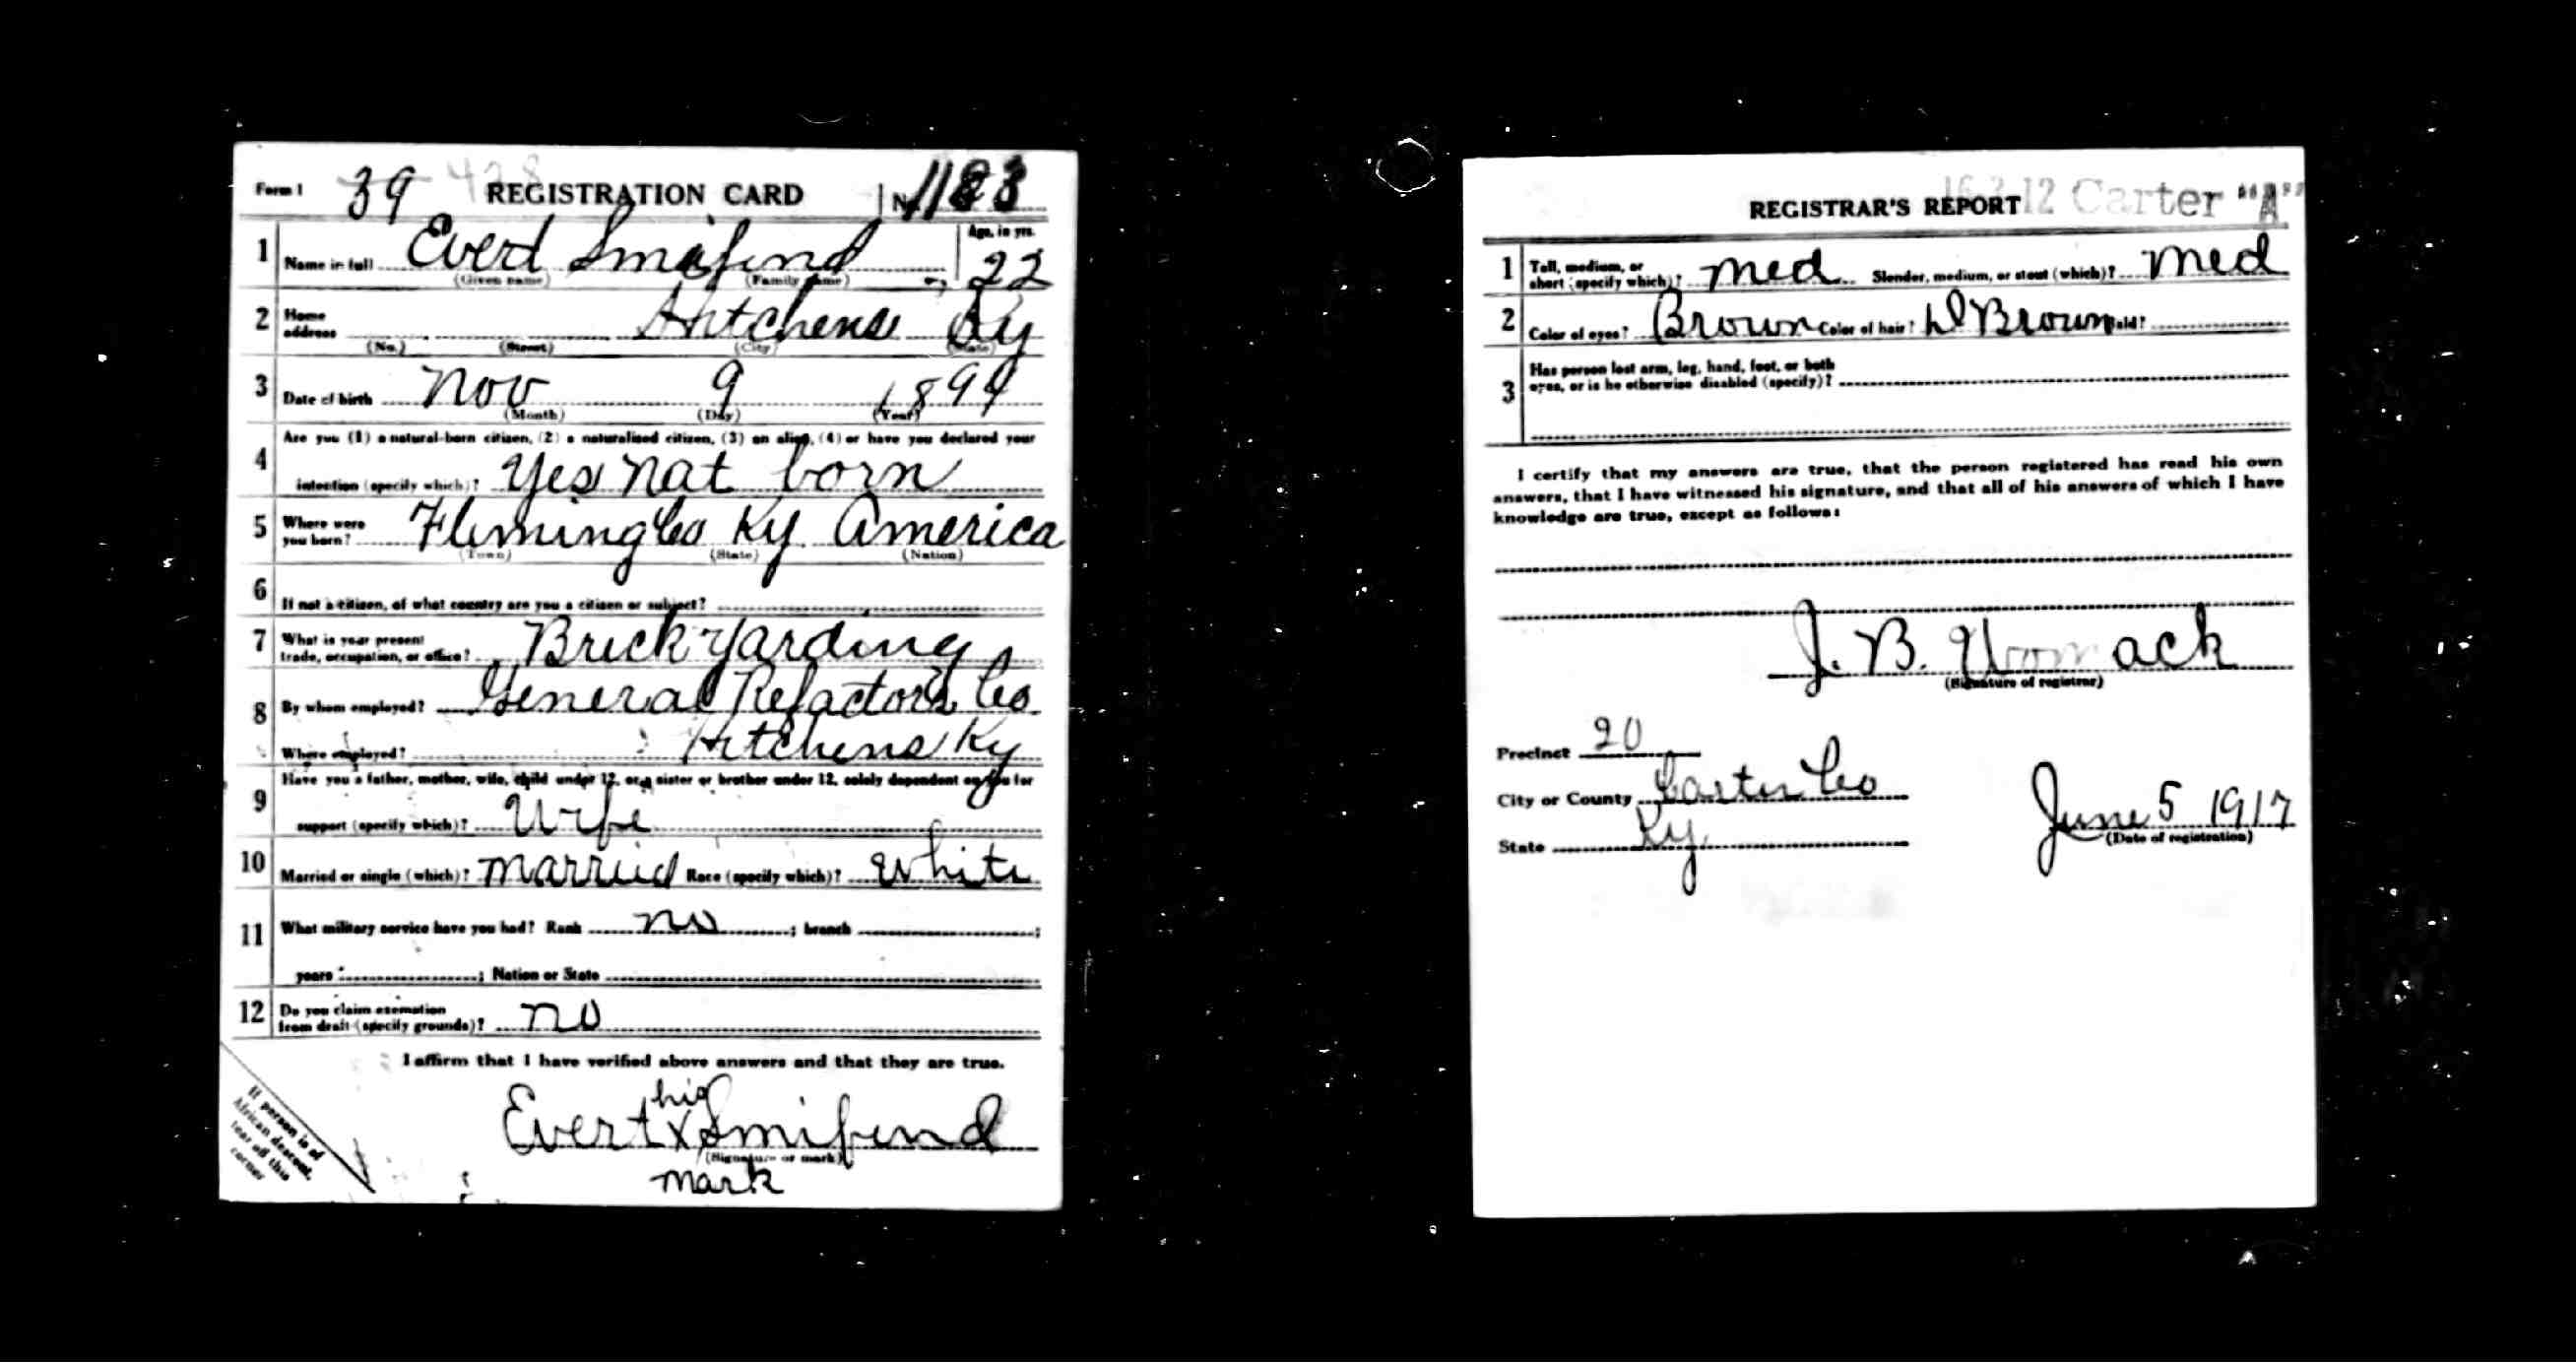 Form 1 39 428 REGISTRATION CARD No. 1183
1 Name in full Everd Smifend Age, in yrs. 22
(Given name) (Family name)
2 Home address Hitchens Ky
(No.) (Street) (City) (State)
3 Date of birth Nov 9 1894
(Month) (Day) (Year)
4 Are you (1) a natural-born citizen, (2) a naturalized citizen, (3) an alien, (4) or have you declared your
intention (specify which)? Yes Nat born
5 Where were you born? Fleming Co Ky America
(Town) (State) (Nation)
6 If not a citizen, of what country are you a citizen or subject?
7 What is your present trade, occupation, or office? Brick Yarding
8 By whom employed? General Refactors Co
Where employed? Hitchens Ky
9 Have you a father, mother, wife, child under 12, or a sister or brother under 12, solely dependent on you for
support (specify which)? Wife
10 Married or single (which)? Married Race (specify which)? White
11 What military service have you had? Rank no ; branch ;
years ; Nation or State
12 Do you claim exemption from draft (specify grounds)? no
I affirm that I have verified above answers and that they are true.
his
Evert X Smifend
(Signature or mark)
mark
If person is of
African descent,
tear off this
corner
REGISTRAR'S REPORT 16-3-12 Carter "A"
1 Tall, medium, or short (specify which)? Med Slender, medium, or stout (which)? Med
2 Color of eyes? Brown Color of hair? D Brown Bald?
3 Has person lost arm, leg, hand, foot, or both
eyes, or is he otherwise disabled (specify)?
I certify that my answers are true, that the person registered has read his own
answers, that I have witnessed his signature, and that all of his answers of which I have
knowledge are true, except as follows:
J. B. Womack
(Signature of registrar)
Precinct 20
City or County Carter Co
State Ky.
June 5 1917
(Date of registration)